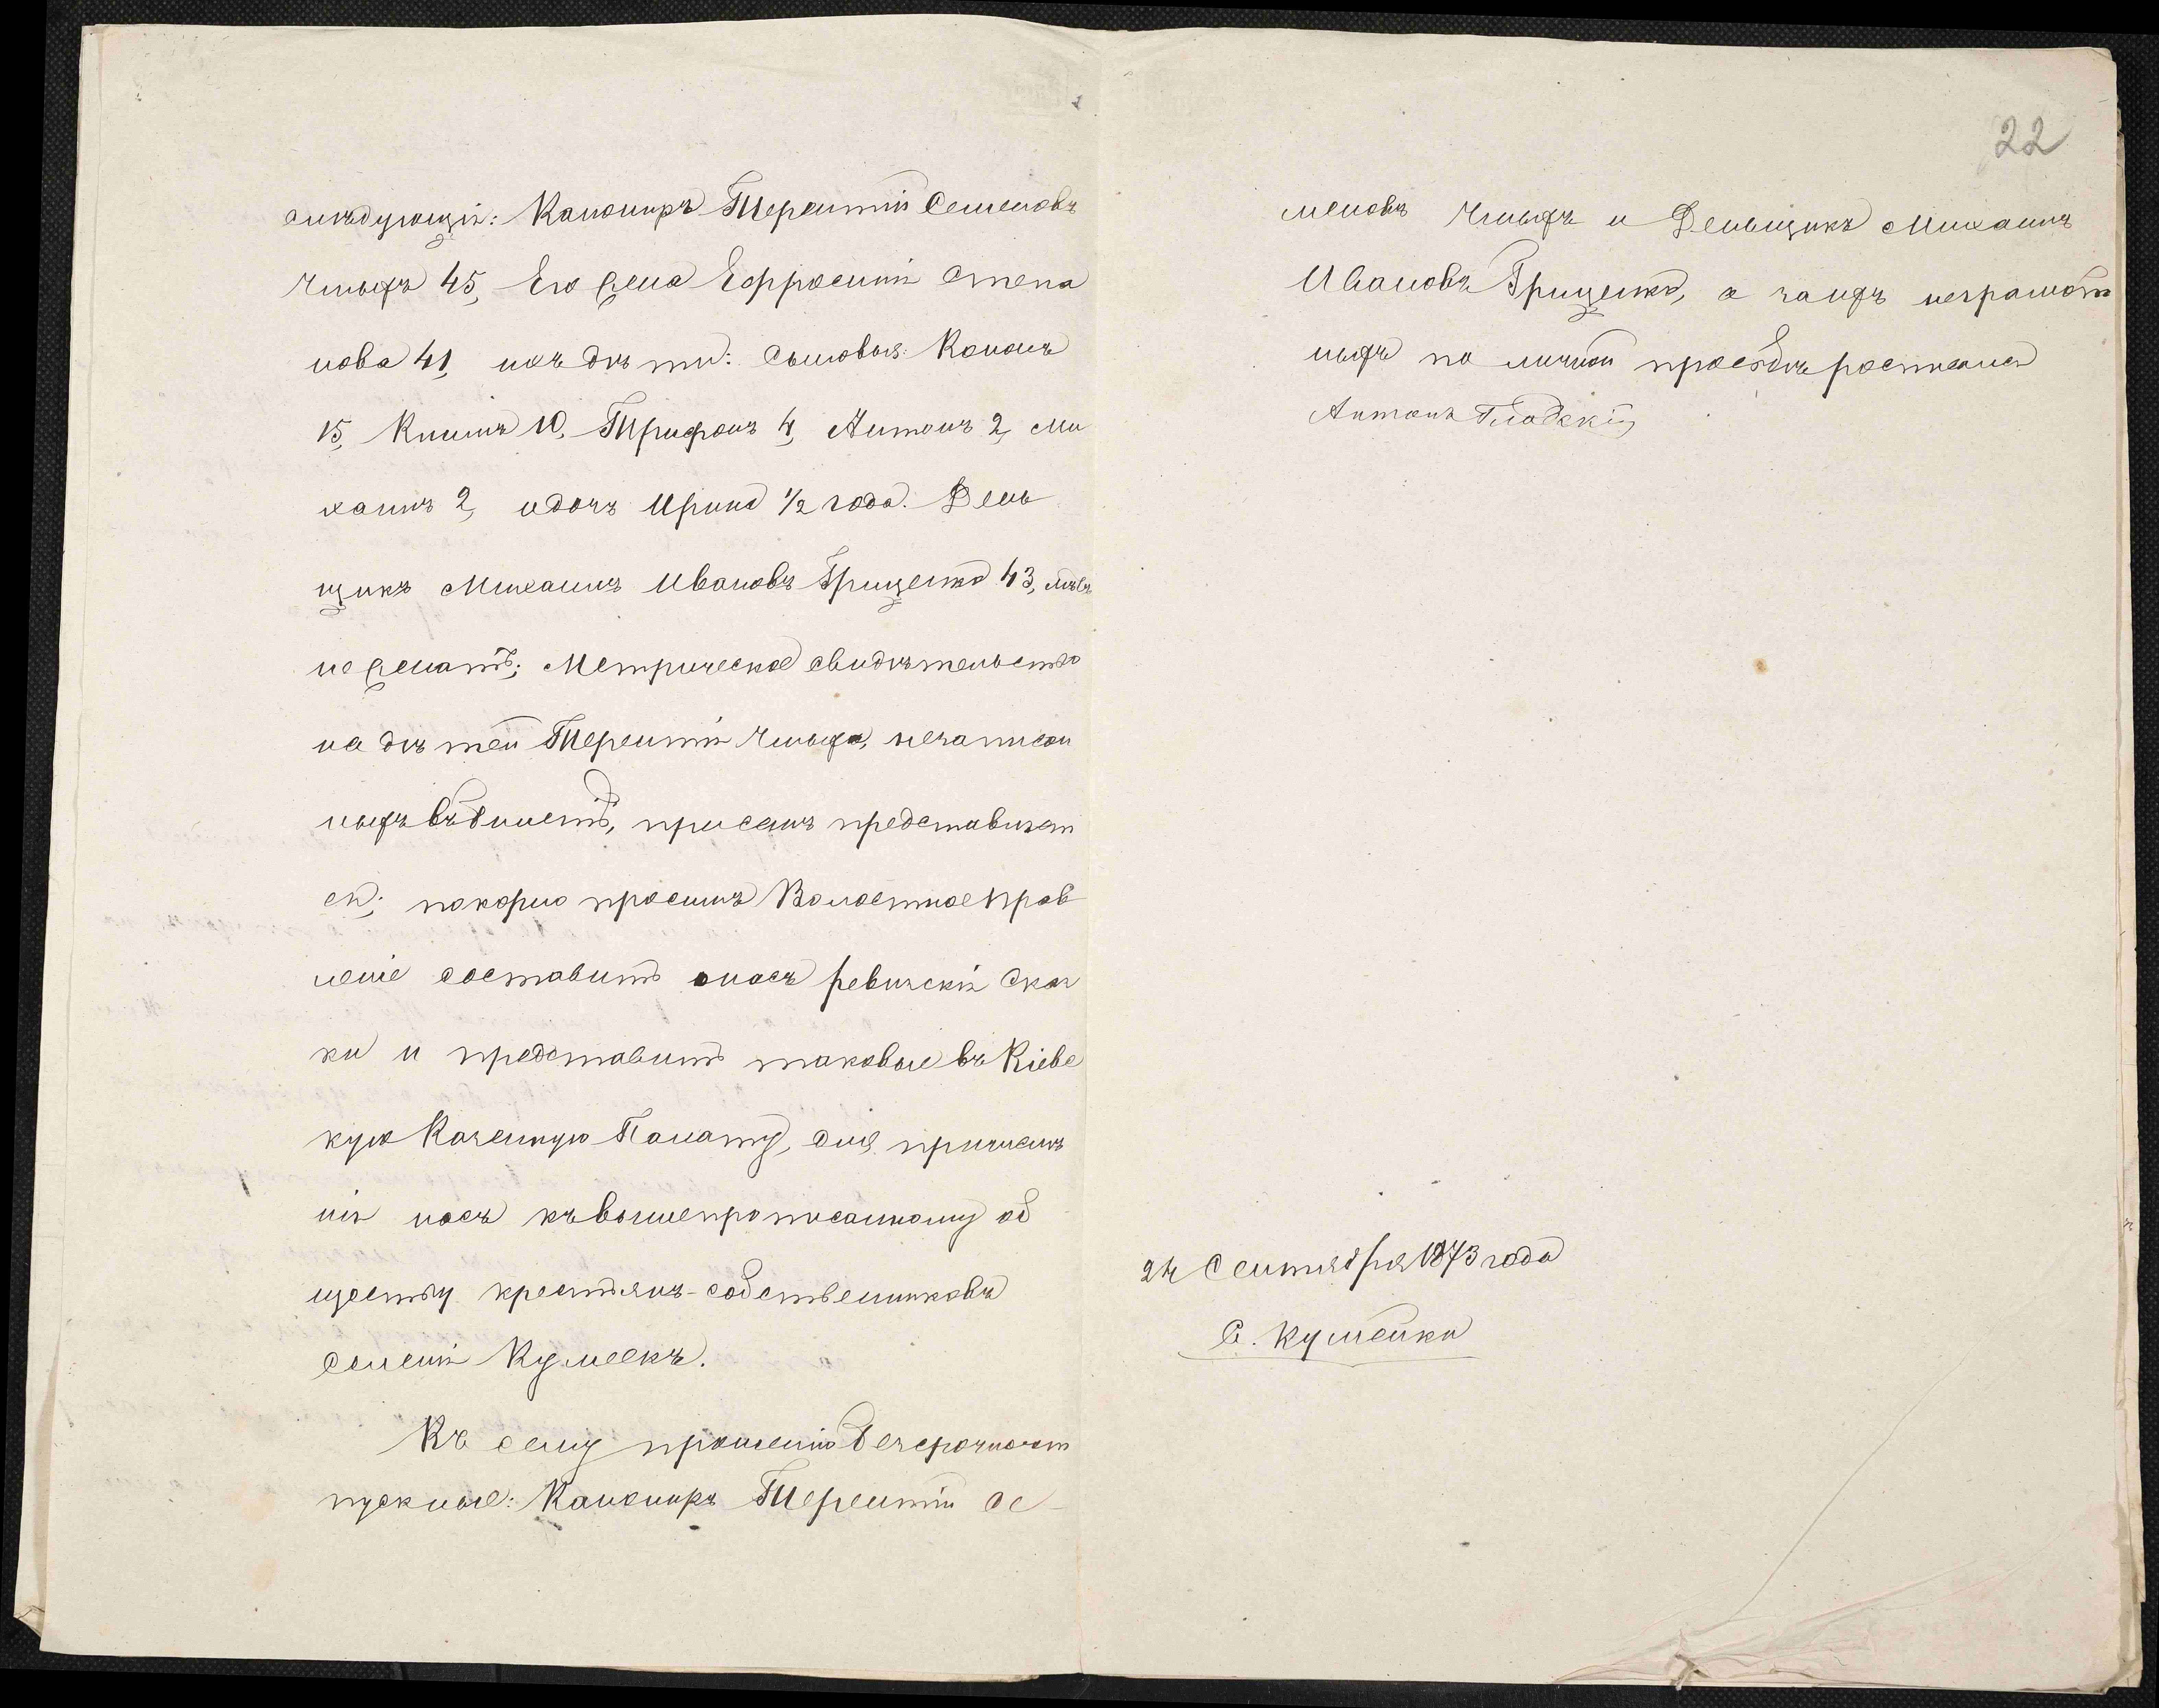 слѣдующія: Канониръ Терентій Семеновъ
Чмыхъ 45, Его жена Ефросинія Степа
нова 41, ихъ дѣти: сыновья: Кононъ
15, Климъ 10, Трифонъ 4, Антонъ 2, Ми
хаилъ 2, и дочь Ирина 1/2 года. День
щикъ Михаилъ Ивановъ Грищенко 43, лѣтъ
не женатъ; Метрическое свидѣтельство
на дѣтей Терентія Чмыха, незаписан
ныхъ въ билетѣ, при семъ представляет
ся; покорно просимъ Волостное прав
леніе составить о насъ ревизскія Сказ
ки и представить таковые въ Кіевс
кую Казенную Палату, для причисле
нія насъ къ вышепрописанному об
ществу крестьянъ-собственниковъ
селенія Кумеекъ.
Къ сему прошенію безсрочноот
пускные: Канониръ Терентій Се-
22
меновъ Чмыхъ и Деньщикъ Михаилъ
Ивановъ Грищенко, а за нихъ неграмот
ныхъ по личной просьбѣ росписался
Антонъ Глодскій
24 Сентября 1873 года
С. Кумейки